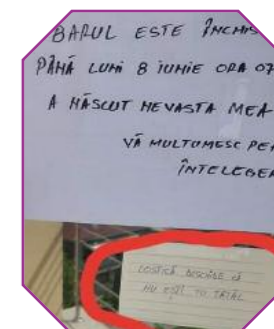 BARUL ESTE ÎNCHIS
PÂNĂ LUNI 8 IUNIE ORA 07
A NĂSCUT NEVASTA MEA
VĂ MULTUMESC PE
ÎNTELEGE
COSTICĂ DESCHIDE CĂ
NU EȘTI TU TATĂL